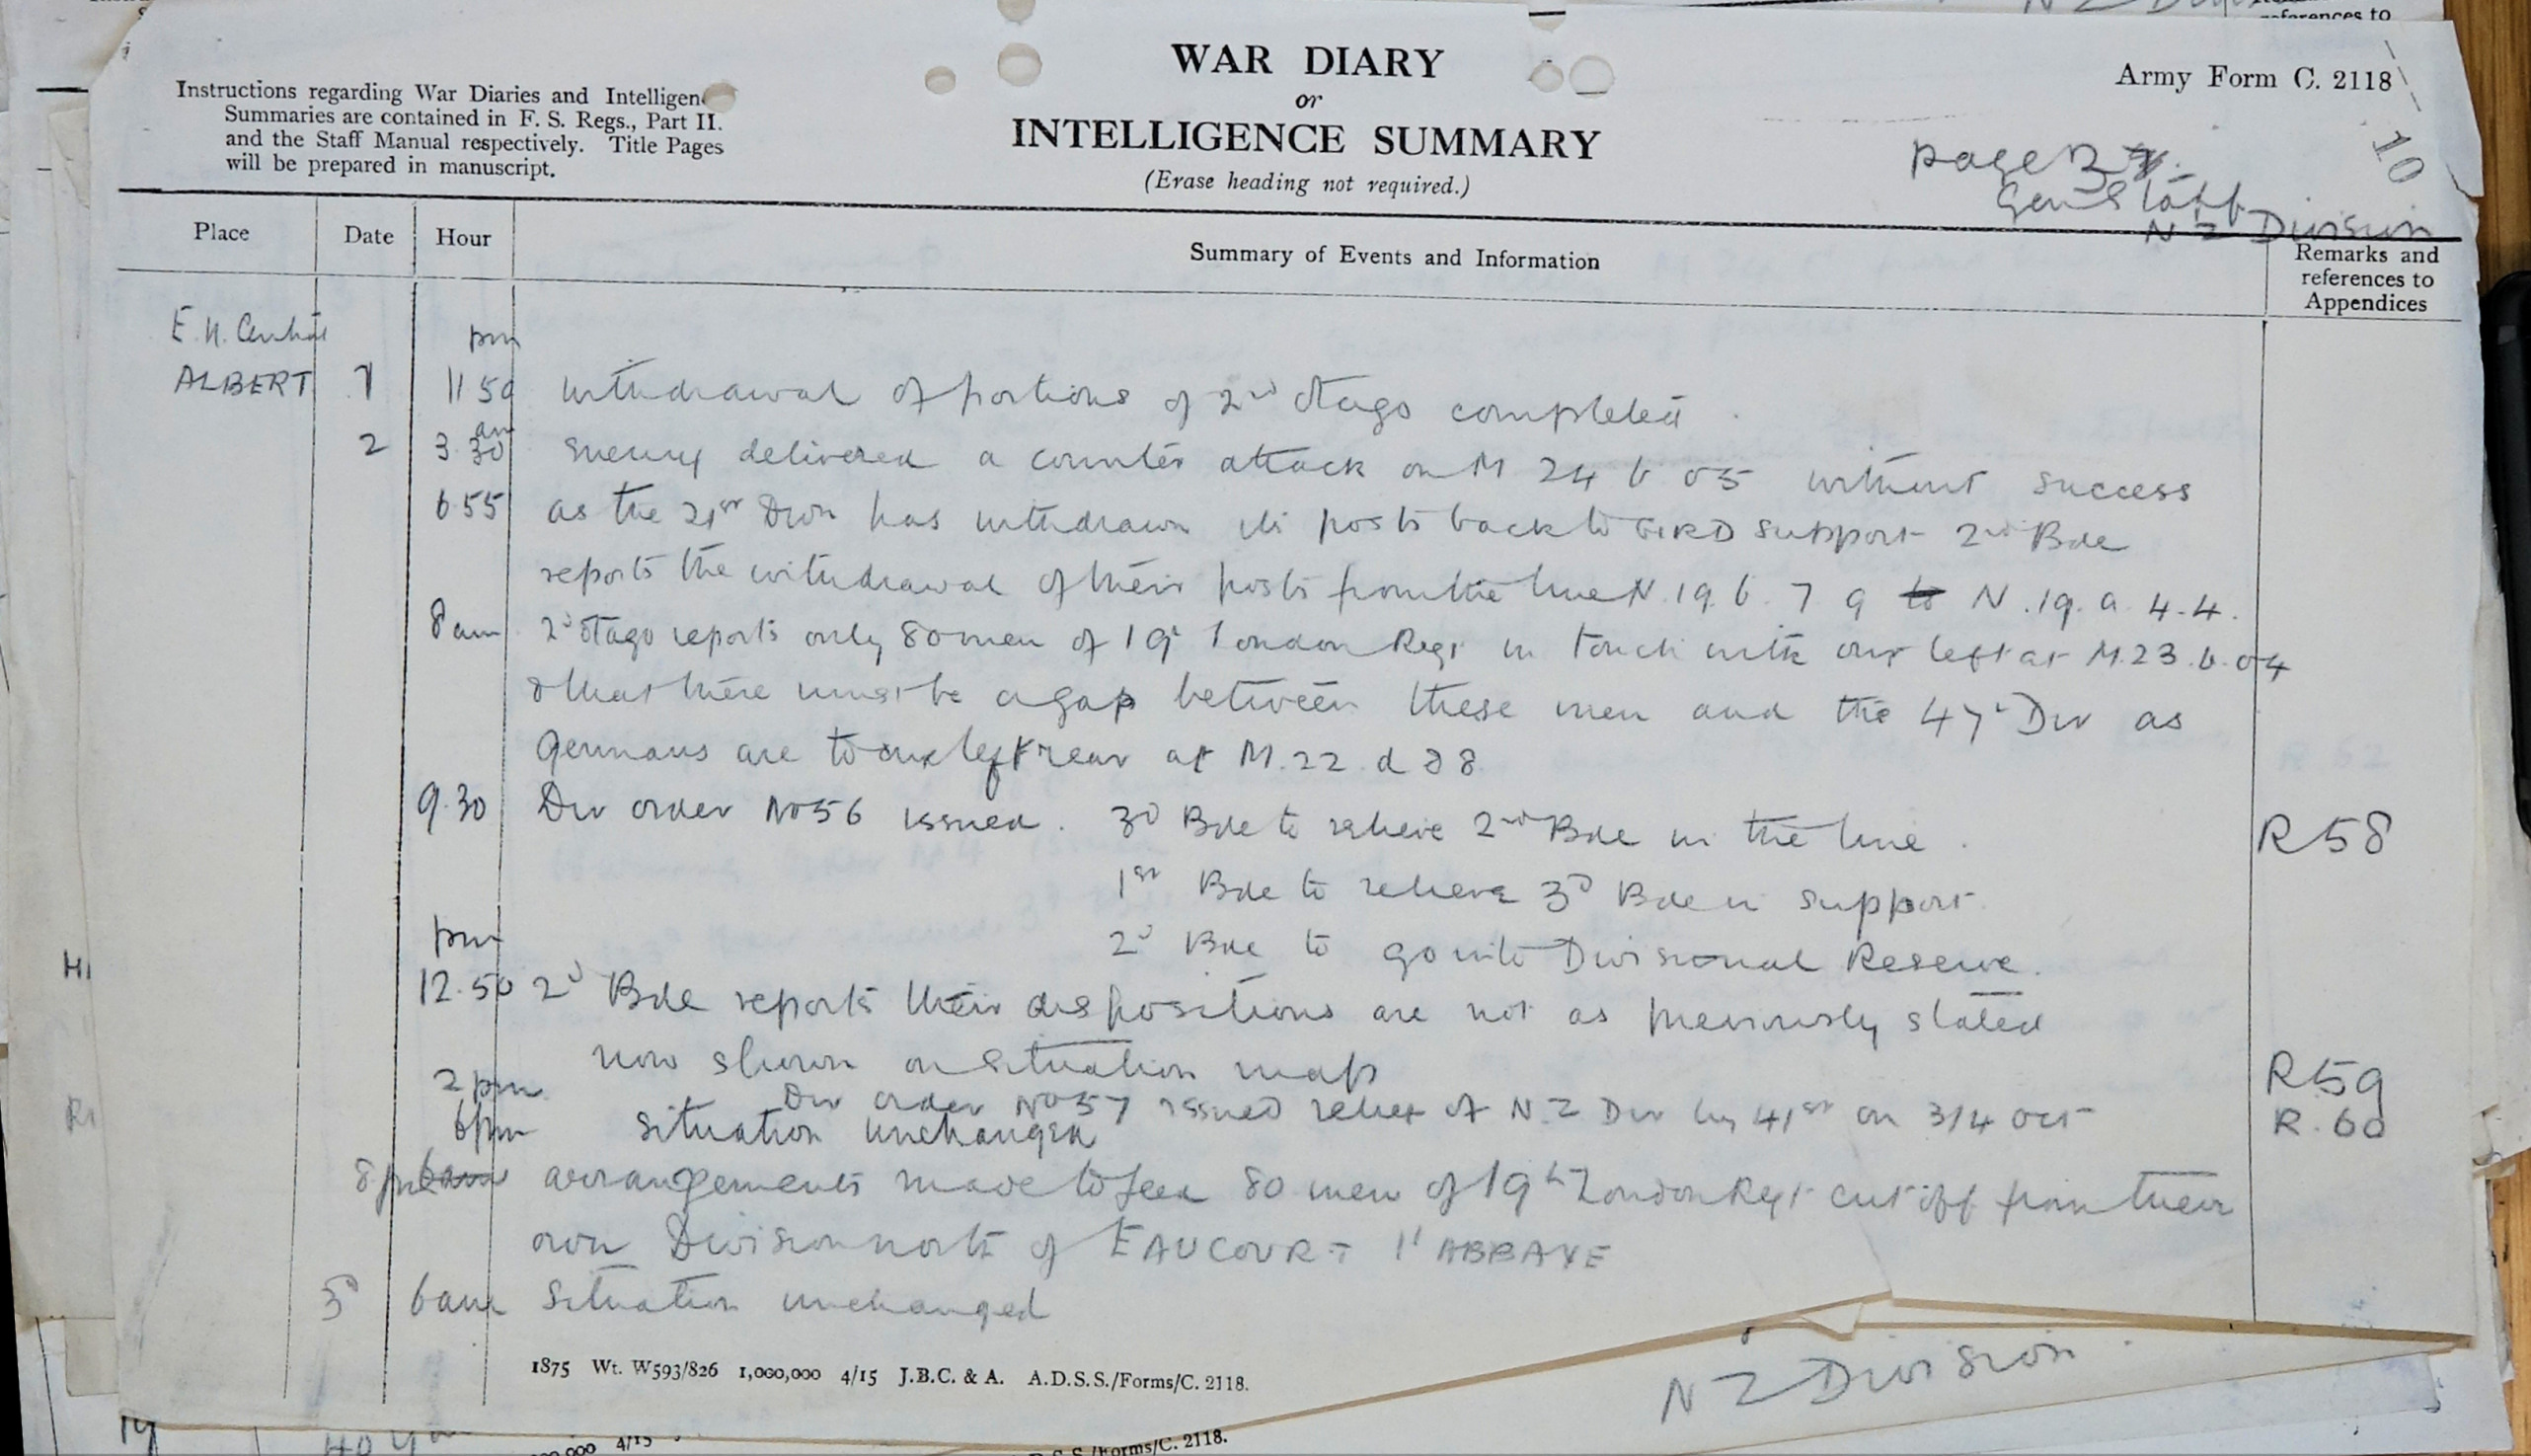 WAR DIARY
or
INTELLIGENCE SUMMARY
(Erase heading not required.)
Instructions regarding War Diaries and Intelligence
Summaries are contained in F. S. Regs., Part II.
and the Staff Manual respectively. Title Pages
will be prepared in manuscript.
Army Form C. 2118
10
page 3
Gen Staff
N Z Division
Place Date Hour Summary of Events and Information Remarks and references to Appendices
E.11. Central pm
ALBERT 1 11 50 withdrawal of portions of 2nd Otago completed.
2 3.30 am enemy delivered a counter attack on M 24 b 05 without success
6 55 as the 21st Divn has withdrawn its posts back to GIRD support 2nd Bde
reports the withdrawal of their posts from the line N.19.b.7 9 to N.19.a.4.4.
8 am 2d Otago reports only 80 men of 19th London Regt in touch with our left at M.23.b.04
& that there must be a gap between these men and the 47th Div as
Germans are to our left rear at M.22.d 88
9.30 Div order No 56 issued. 3d Bde to relieve 2nd Bde in the line. R58
1st Bde to relieve 3d Bde in support.
2d Bde to go into Divisional Reserve.
pm
12.50 2d Bde reports their dispositions are not as previously stated
now shown on situation map R59
2 pm Div order No 57 issued relief of N.Z Div by 41st on 3/4 Oct R.60
6 pm situation unchanged
8 pm 6am arrangements made to feed 80 men of 19th London Regt cut off from their
own Division north of EAUCOURT l'ABBAYE
3d 6 am situation unchanged
1875 Wt. W593/826 1,000,000 4/15 J.B.C. & A. A.D.S.S./Forms/C. 2118.
N Z Division
4/15 /Forms/C. 2118.